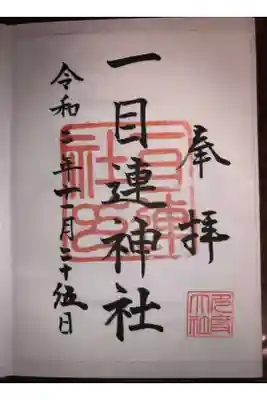 奉拝
一目連神社
令和二年十一月二十伍日
多度大社